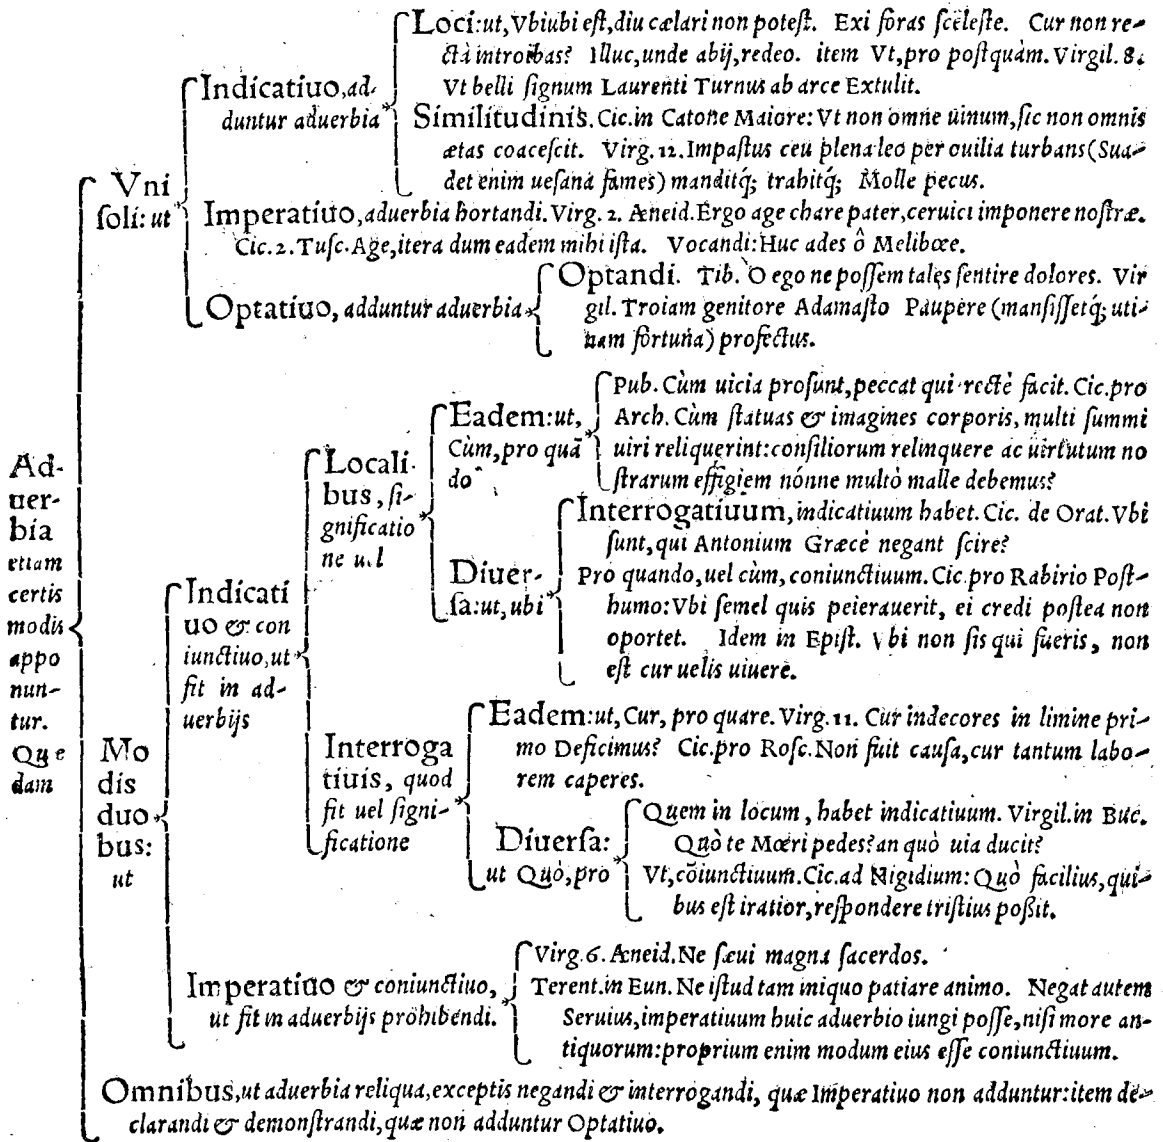 Ad-
uer-
bia
etiam
certis
modis
appo
nun-
tur.
Quę
dam
Vni
soli: ut
Indicatiuo, ad-
duntur aduerbia
Loci: ut, Vbiubi est, diu cælari non potest. Exi foras sceleste. Cur non re-
ctà introibas? Illuc, unde abij, redeo. item Vt, pro postquàm. Virgil. 8.
Vt belli signum Laurenti Turnus ab arce Extulit.
Similitudinis. Cic. in Catone Maiore: Vt non omne uinum, sic non omnis
ætas coacescit. Virg. 12. Impastus ceu plena leo per ouilia turbans (Sua-
det enim uesana fames) manditq́; trahitq́; Molle pecus.
Imperatiuo, aduerbia hortandi. Virg. 2. Aeneid. Ergo age chare pater, ceruici imponere nostræ.
Cic. 2. Tusc. Age, itera dum eadem mihi ista. Vocandi: Huc ades ô Melibœe.
Optatiuo, adduntur aduerbia
Optandi. Tib. O ego ne possem tales sentire dolores. Vir
gil. Troiam genitore Adamasto Paupere (mansissetq́; uti-
nam fortuna) profectus.
Mo
dis
duo
bus:
ut
Indicati
uo & con
iunctiuo, ut
fit in ad-
uerbijs
Locali
bus, si-
gnificatio
ne uel
Eadem: ut,
Cùm, pro quā
do
Pub. Cùm uicia prosunt, peccat qui rectè facit. Cic. pro
Arch. Cùm statuas & imagines corporis, multi summi
uiri reliquerint: consiliorum relinquere ac uirtutum no
strarum effigiem nónne multò malle debemus?
Diuer-
sa: ut, ubi
Interrogatiuum, indicatiuum habet. Cic. de Orat. Vbi
sunt, qui Antonium Græcè negant scire?
Pro quando, uel cùm, coniunctiuum. Cic. pro Rabirio Post-
humo: Vbi semel quis peierauerit, ei credi postea non
oportet. Idem in Epist. Vbi non sis qui fueris, non
est cur uelis uiuere.
Interroga
tiuis, quod
fit uel signi-
ficatione
Eadem: ut, Cur, pro quare. Virg. 11. Cur indecores in limine pri-
mo Deficimus? Cic. pro Rosc. Non fuit causa, cur tantum labo-
rem caperes.
Diuersa:
ut Quò, pro
Quem in locum, habet indicatiuum. Virgil. in Buc.
Quò te Mœri pedes? an quò uia ducit?
Vt, cōiunctiuum. Cic. ad Nigidium: Quò facilius, qui-
bus est iratior, respondere tristius poßit.
Imperatiuo & coniunctiuo,
ut fit in aduerbijs prohibendi.
Virg. 6. Aeneid. Ne sæui magna sacerdos.
Terent. in Eun. Ne istud tam iniquo patiare animo. Negat autem
Seruius, imperatiuum huic aduerbio iungi posse, nisi more an-
tiquorum: proprium enim modum eius esse coniunctiuum.
Omnibus, ut aduerbia reliqua, exceptis negandi & interrogandi, quæ Imperatiuo non adduntur: item de-
clarandi & demonstrandi, quæ non adduntur Optatiuo.